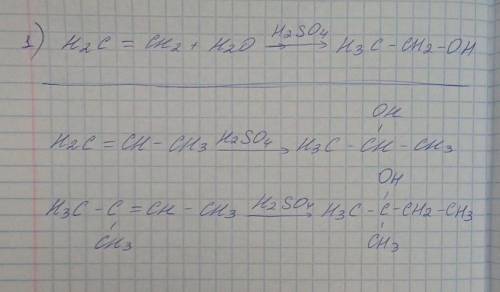 1) H2C = CH2 + H2O H2SO4→ H3C - CH2 - OH
OH
H2C = CH - CH3 H2SO4→ H3C - CH - CH3
OH
H3C - C = CH - CH3 H2SO4→ H3C - C - CH2 - CH3
CH3 CH3